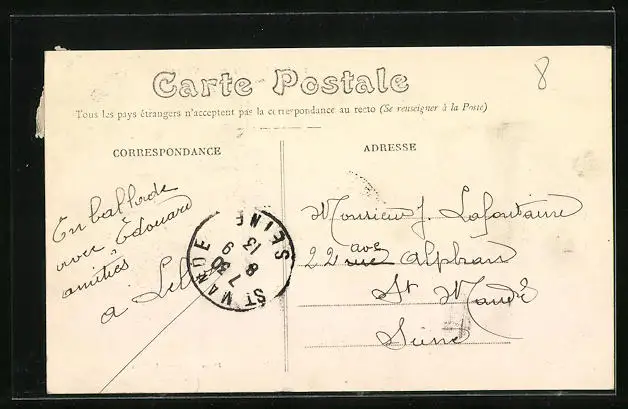 8
Carte Postale
Tous les pays étrangers n'acceptent pas la correspondance au recto (Se renseigner à la Poste)
CORRESPONDANCE
ADRESSE
En ballade
avec Edouard
amitiés
a
ST MANDE
SEINE
7 30
8
13
9
Monsieur J. Lafontaine
ave
22 rue
St Mandé
Seine